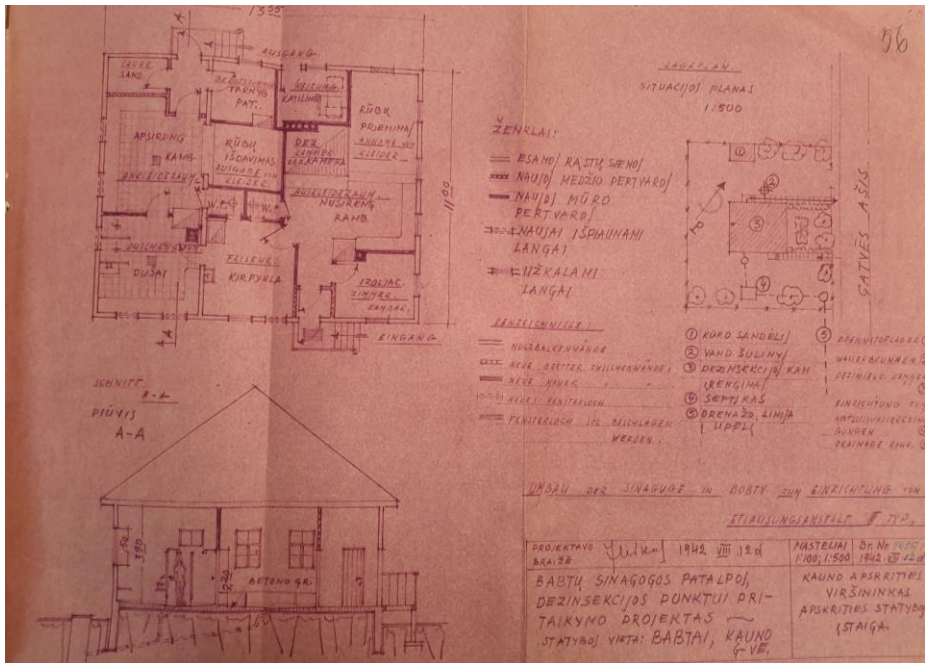 56
13 00
AUSGANG
LAGER
SAND.
TARNYB.
PAT.
HEIZUNG
KATILINĖ
RŪBŲ
PRIĖMIMAS
ANNAHME VON
KLEIDER
APSIRENG.
KAMB.
ANKLEIDERAUM
RŪBŲ
IŠDAVIMAS
AUSGABE VON
KLEIDER
DEZ.
KAMMER
KAMERA
AUSKLEIDERAUM
NUSIRENG.
KAMB.
11 00
W.C.
W.C.
DUŠAI
KIRPYKLA
IZOLIAC.
ZIMMER
KAMBAR.
EINGANG
A
A
LAGEPLAN
SITUACIJOS PLANAS
1:500
ŽENKLAI:
ESAMOS RĄSTŲ SIENOS
NAUJOS MEDŽIO PERTVAROS
NAUJOS MŪRO
PERTVAROS
NAUJAI IŠPIAUNAMI
LANGAI
UŽKALAMI
LANGAI
HOLZBALKENWÄNDE
NEUE BRETTER ZWISCHENWÄNDE
NEUE MAUER " "
NEUES FENSTERLOCH
FENSTERLOCH SOL BESCHLAGEN
WERDEN.
GATVĖS AŠIS
① KŪRO SANDĖLIS
② VAND. ŠULINYS
③ DEZINSEKCIJOS KAM.
ĮRENGIMAI
④ SEPTIKAS
⑤ DRENAŽO LINIJA
Į UPELĮ
DRAINAGE ROHR.
SCHNITT
A-A
PIŪVIS
A-A
390
220
BETONO GR.
UMBAU DER SINAGOGE IN BOBTY ZUM EINRICHTUNG VON
ETLAUSUNGSANSTALT II TYP.
PROJEKTAVO
BRAIŽĖ
1942 VIII 12 d
MASTELIAI
1:100; 1:500
Br. Nr.
1942 VIII 12 d
BABTŲ SINAGOGOS PATALPOS,
DEZINSEKCIJOS PUNKTUI PRI-
TAIKYMO PROJEKTAS
STATYBOS VIETA: BABTAI, KAUNO
G-VĖ.
KAUNO APSKRITIES
VIRŠININKAS
APSKRITIES STATYBOS
ĮSTAIGA.